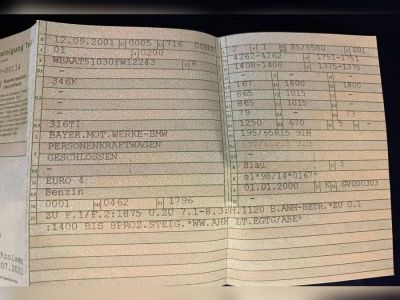 12.09.2001 0005 716
01 0200
WBAAT51030FW12243 8
-
346K
-
-
-
316TI
BAYER.MOT.WERKE-BMW
PERSONENKRAFTWAGEN
GESCHLOSSEN
-
EURO 4
Benzin
0001 0462 1796
2 1 85/5500 201
4262-4262 1751-1751
1408-1408 1375-1375
- - -
167 1600 1800
865 1015 -
865 1015 -
79 - 73
1250 670 5 -
195/65R15 91H
195/65R15 91H
-
Blau 5
e1*98/14*0167*
01.01.2000 K GV000303
- - -
ZU F.1/F.2:1875 U.ZU 7.1-8.3:H.1120 B.ANH-BETR.*ZU O.1
:1400 BIS 8PROZ.STEIG.*WW.AHK LT.EGTG/ABE*